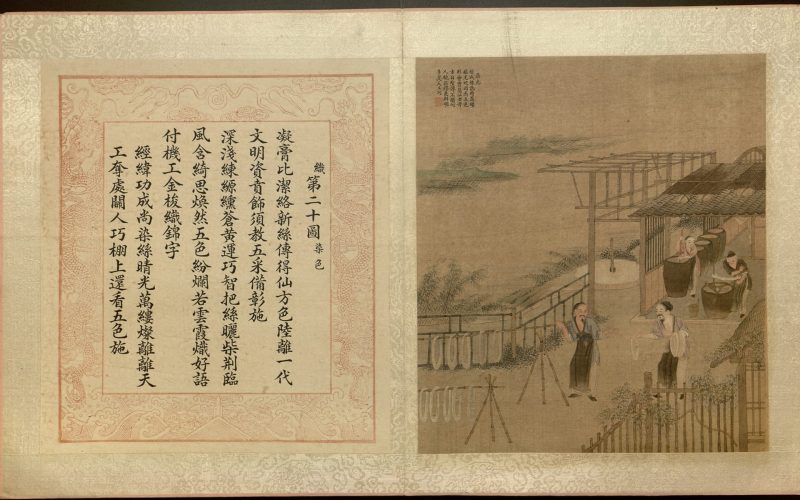 織第二十圖 染色
凝膏比潔絡新絲傳得仙方色陸離一代
文明資賁飾須教五采備彰施
深淺練縓纁蒼黃運巧智把絲曬柴荆臨
風含綺思煥然五色紛爛若雲霞熾好語
付機工金梭織錦字
經緯功成尚染絲晴光萬縷燦離離天
工奪處關人巧棚上還看五色施
染色